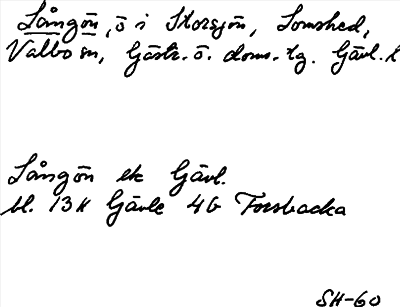 Långön, ö i Storsjön, Lomshed,
Valbo sn, Gästr. ö. doms. tg. Gävl. l
Långön ek Gävl.
bl. 13H Gävle 4G Forsbacka
SH-60